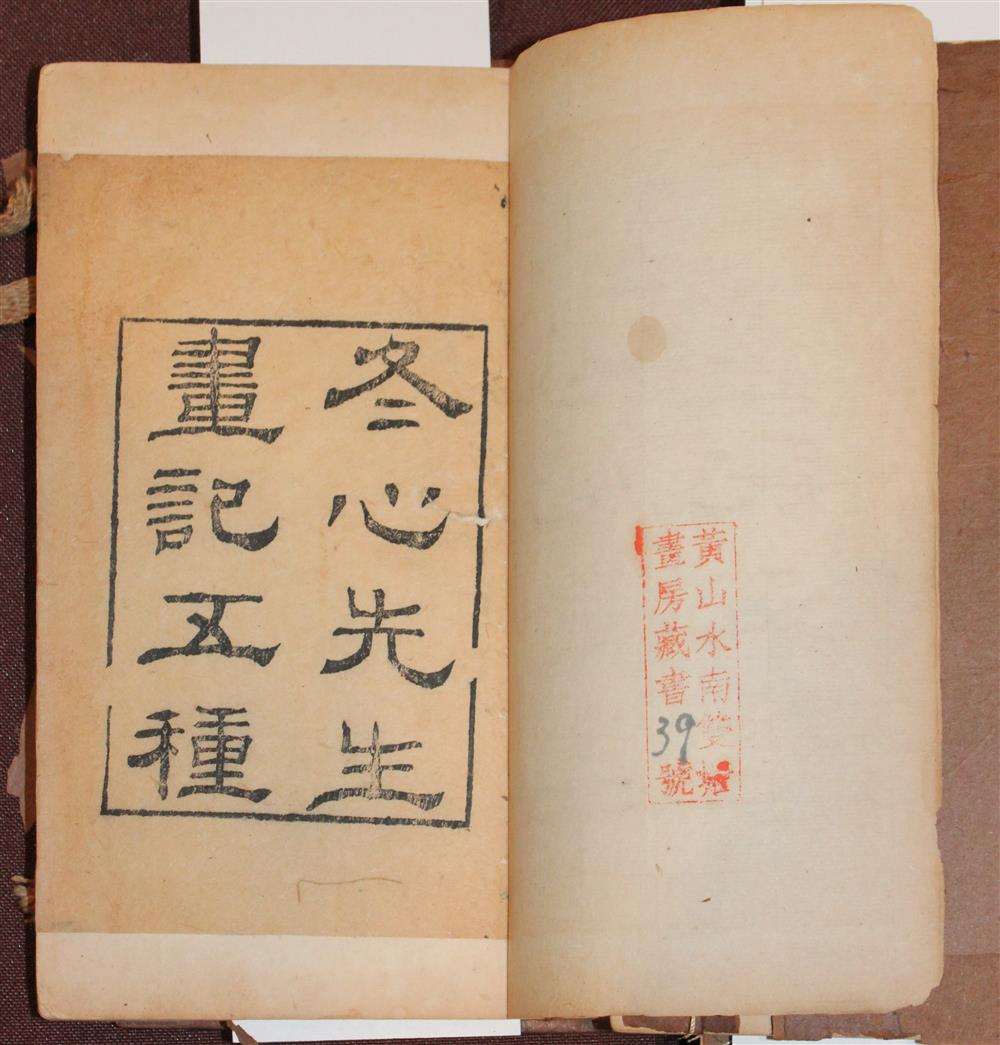 黃山水南雙
畫房藏書39號
冬心先生
畫記五種